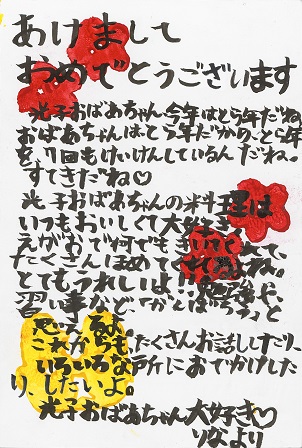 あけまして
おめでとうございます
光子おばあちゃん今年はとら年だね。
おばあちゃんはとら年だから、とら年
を7回もけいけんしているんだね。
すてきだね♡
光子おばあちゃんの料理は
いつもおいしくて大好き。
えがおで何でもきいてくれて、
たくさんほめてくれてね。
とてもうれしいよ。勉強や、
習い事など、がんばろうと
思えるよ。
これからもたくさんお話ししたり、
いろいろな所におでかけした
り、したいよ。
光子おばあちゃん大好き♡
りなより